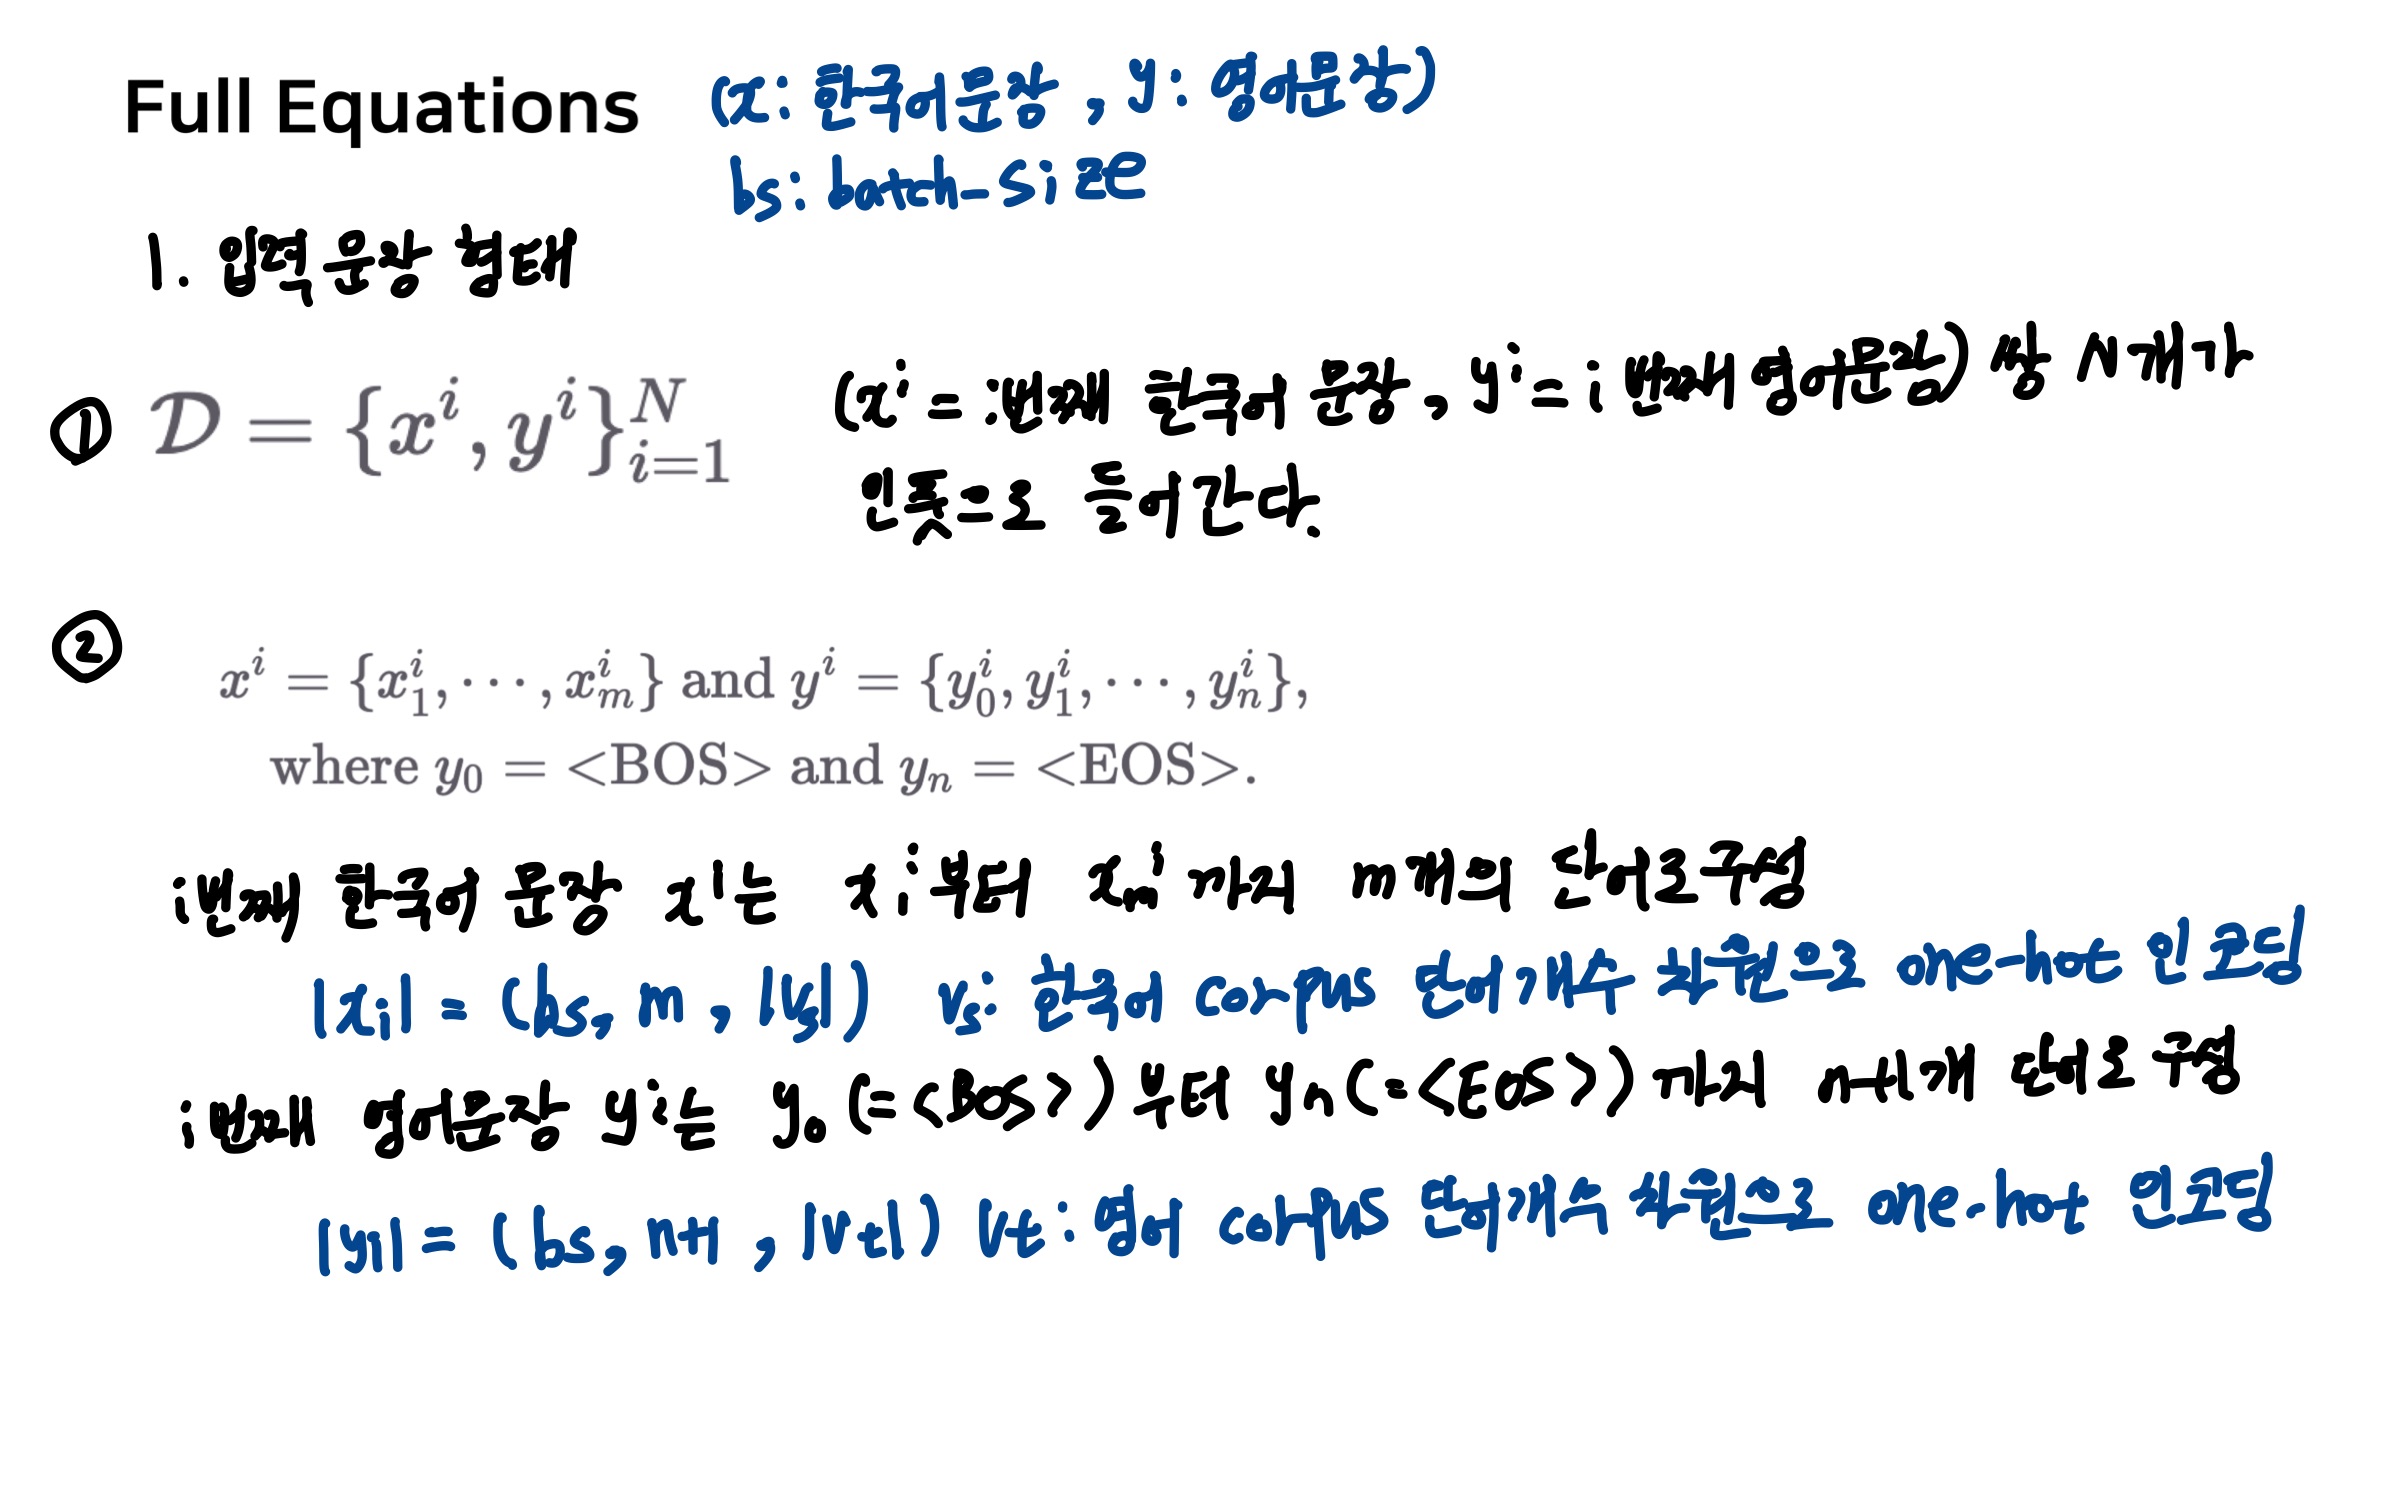 Full Equations (x: 한국어문장, y: 영어문장)
bs: batch-size
1. 입력 문장 형태
① 𝒟 = {xⁱ, yⁱ}ᴺᵢ₌₁ (xⁱ = i번째 한국어 문장, yⁱ = i 번째 영어문장) 쌍 N개가
인풋으로 들어간다.
②
xⁱ = {x₁ⁱ, ⋯, xₘⁱ} and yⁱ = {y₀ⁱ, y₁ⁱ, ⋯, yₙⁱ},
where y₀ = <BOS> and yₙ = <EOS>.
i번째 한국어 문장 xⁱ는 x₁ⁱ부터 xₘⁱ까지 m개의 단어로 구성
|xᵢ| = (bs, m, |Vs|) Vs: 한국어 corpus 단어개수 차원으로 one-hot 인코딩
i번째 영어문장 yⁱ는 y₀(=<BOS>)부터 yₙ(=<EOS>)까지 n+1개 단어로 구성
|yᵢ| = (bs, n+1, |Vt|) Vt: 영어 corpus 단어개수 차원으로 one-hot 인코딩